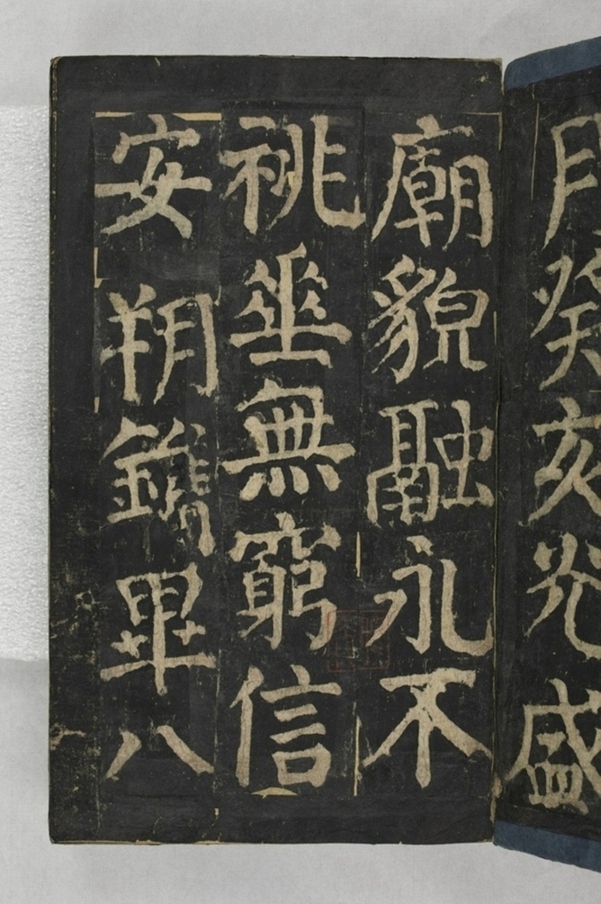 月癸亥光盛
廟貌融永不
祧垂無窮信
安朔鐫畢八